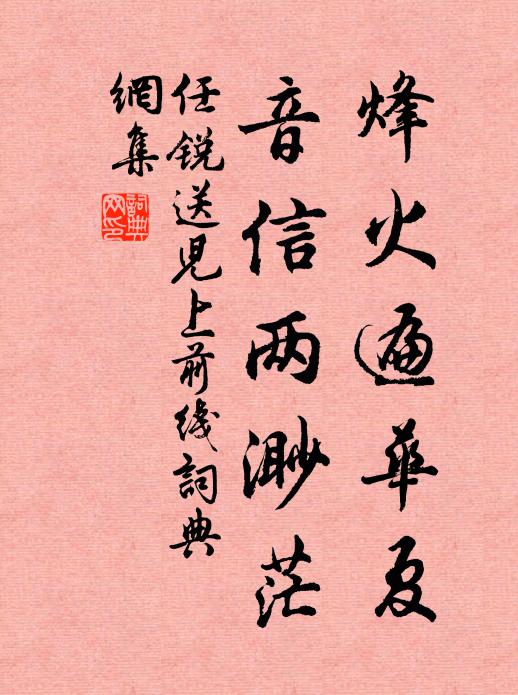 烽火遍華夏
音信两渺茫
任銳送児上前线詞典
網集
詞典
网印